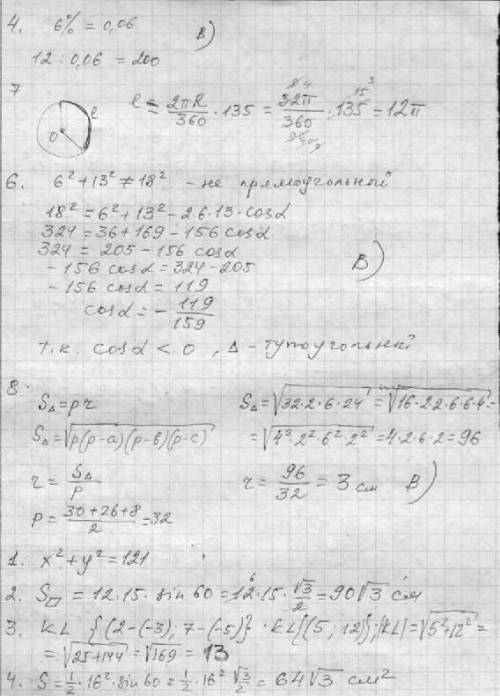 4. 6% = 0,06
В)
12 : 0,06 = 200
7
O l
l = 2πR/360 · 135 = 32π/360 · 135 = 12π
6. 6² + 13² ≠ 18² - не прямоугольный
18² = 6² + 13² - 2·6·13·cosα
324 = 36 + 169 - 156 cosα
324 = 205 - 156 cosα
-156 cosα = 324 - 205
В)
-156 cosα = 119
cosα = - 119/159
т.к. cosα < 0, Δ - тупоугольный
8
S△ = pr
S△ = √32·2·6·24 = √16·2·2·6·6·4 =
S△ = √p(p-a)(p-b)(p-c)
= √4²·2²·6²·2² = 4·2·6·2 = 96
r = S△/p
r = 96/32 = 3 см В)
p = 30+26+8/2 = 32
1. x² + y² = 121
2. S▱ = 12·15·sin 60 = 12·15·√3/2 = 90√3 см
3. KL {(2-(-3); 7-(-5)} · KL{(5; 12)}; |KL| = √5²+12² =
= √25+144 = √169 = 13
4. S = 1/2·16²·sin 60 = 1/2·16² √3/2 = 64√3 см²